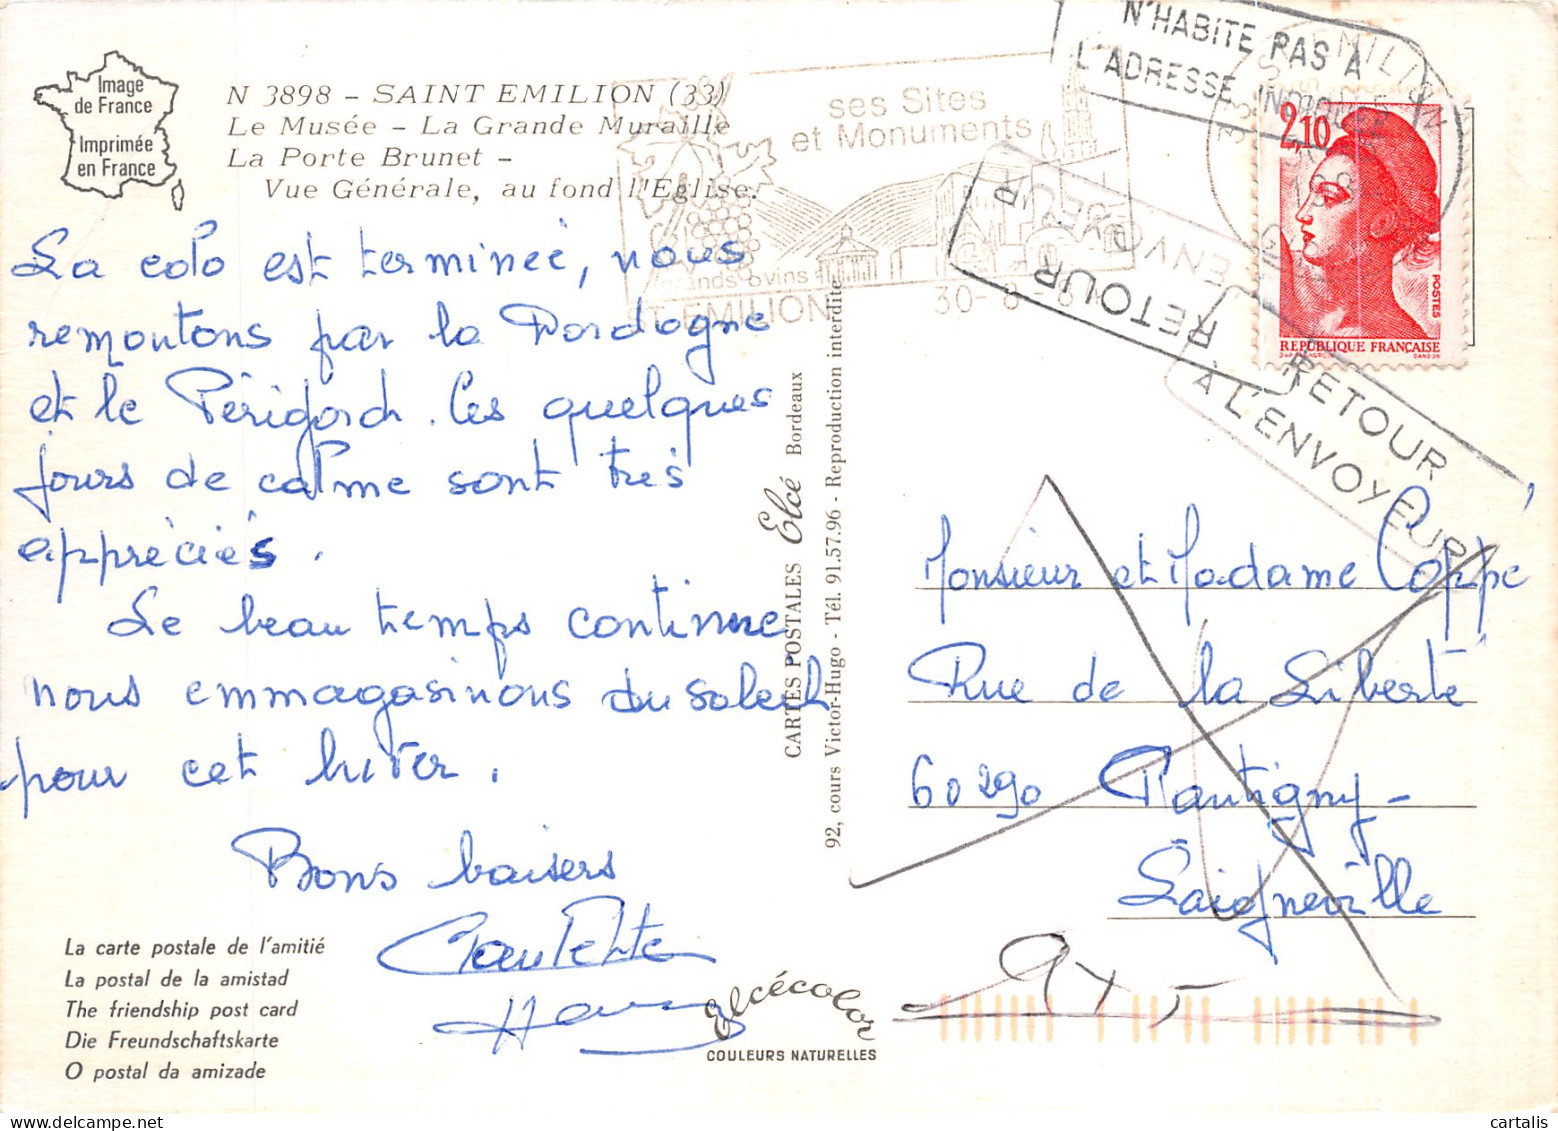 Image
de France
Imprimée
en France
N 3898 - SAINT EMILION (33)
Le Musée - La Grande Muraille
La Porte Brunet -
Vue Générale, au fond l'Eglise.
ses Sites
et Monuments
ST-EMILION
30-8-8
N'HABITE PAS A
L'ADRESSE INDIQUÉE
RETOUR
ENVOYEUR
RETOUR
À L'ENVOYEUR
2,10
POSTES
REPUBLIQUE FRANÇAISE
La colo est terminée, nous
remontons par la Dordogne
et le Périgord. Ces quelques
jours de calme sont très
appréciés.
Le beau temps continue
nous emmagasinons du soleil
pour cet hiver.
Bons baisers
CARTES POSTALES Elcé Bordeaux
92, cours Victor-Hugo - Tél. 91.57.96 - Reproduction interdite
Monsieur et Madame Coppé
Rue de la Liberté
60290 Rantigny-
Laigneville
La carte postale de l'amitié
La postal de la amistad
The friendship post card
Die Freundschaftskarte
O postal da amizade
Elcécolor
COULEURS NATURELLES
cartalis